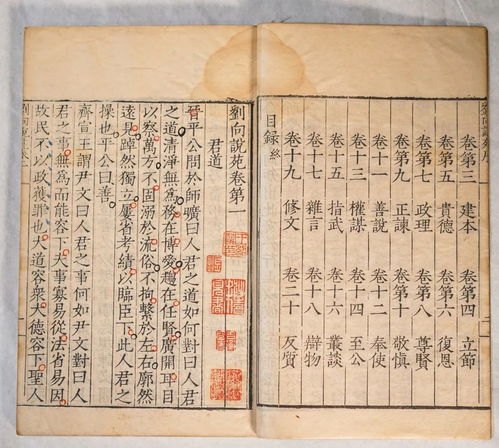 卷第三 建本 卷第四 立節
卷第五 貴德 卷第六 復恩
卷第七 政理 卷第八 尊賢
卷第九 正諫 卷第十 敬慎
卷十一 善說 卷十二 奉使
卷十三 權謀 卷十四 至公
卷十五 指武 卷十六 叢談
卷十七 雜言 卷十八 辯物
卷十九 修文 卷二十 反質
目錄終
劉向說苑卷第一
君道
晉平公問於師曠曰人君之道如何對曰人君
之道清淨無為務在博愛趨在任賢廣開耳目
以察萬方不固溺於流俗不拘繫於左右廓然
遠見踔然獨立屢省考績以臨臣下此人君之
操也平公曰善
齊宣王謂尹文曰人君之事何如尹文對曰人
君之事無為而能容下夫事寡易從法省易因
故民不以政獲罪也大道容眾大德容下聖人